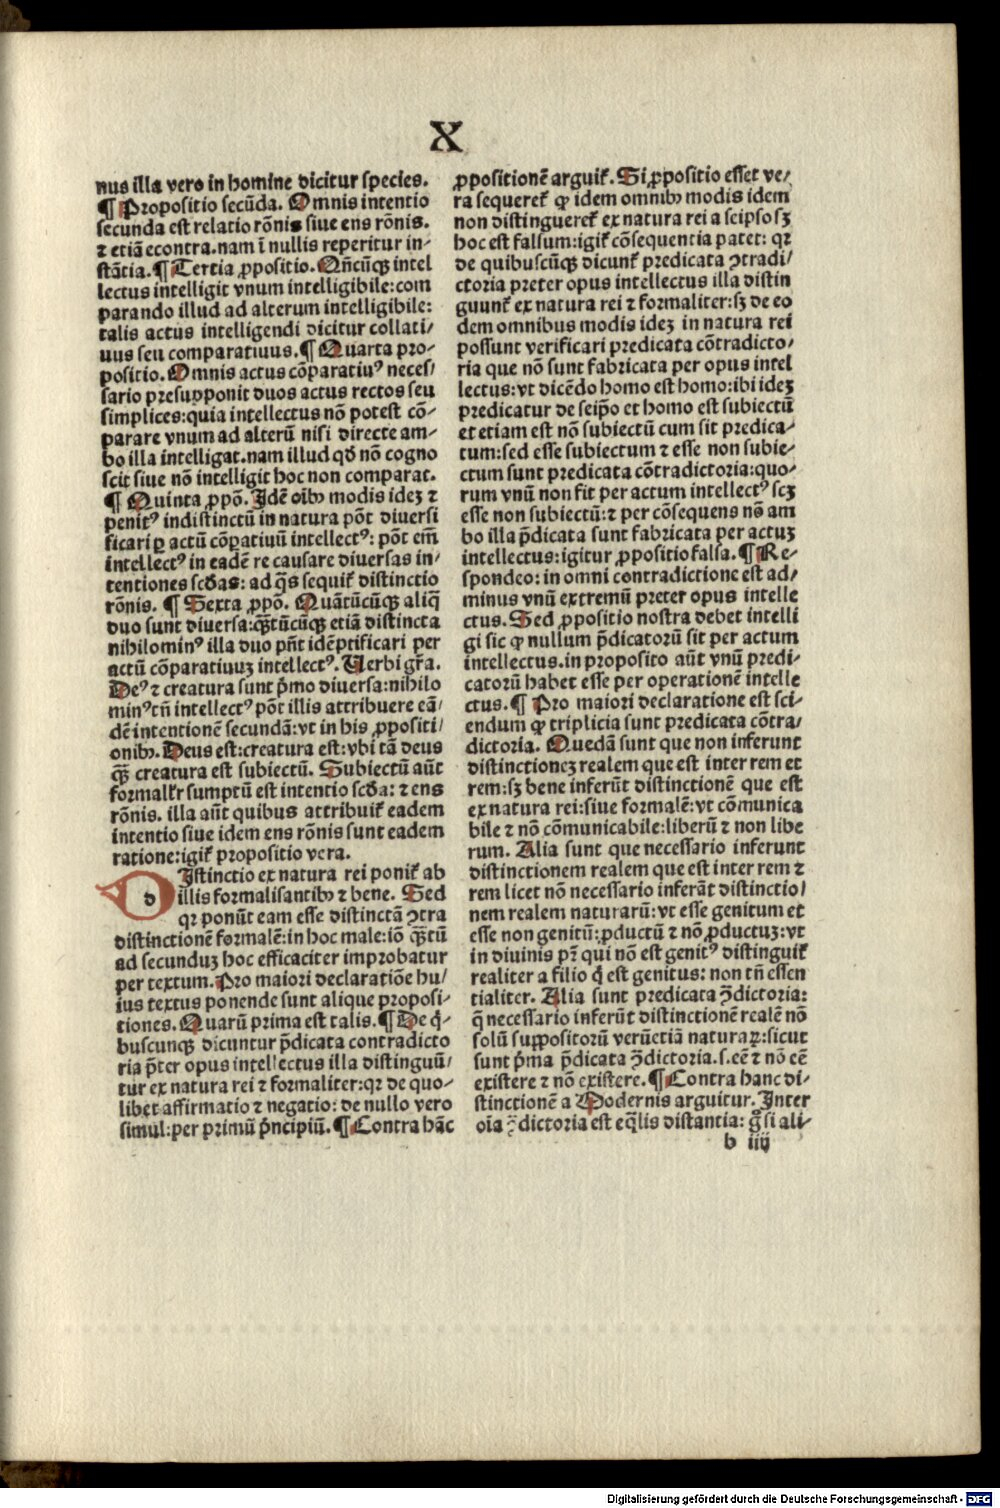 X
nus illa vero in homine dicitur species.
¶ Propositio secūda. Omnis intentio
secunda est relatio rōnis siue ens rōnis.
⁊ etiā econtra. nam ī nullis reperitur in-
stātia. ¶ Tertia ꝓpositio. Qn̄cūqꝫ intel
lectus intelligit vnum intelligibile: com
parando illud ad alterum intelligibile:
talis actus intelligendi dicitur collati/
uus seu comparatiuus. ¶ Quarta pro-
positio. Omnis actus cōparatiuꝰ neces/
sario presupponit duos actus rectos seu
simplices: quia intellectus nō potest cō-
parare vnum ad alterū nisi directe am-
bo illa intelligat. nam illud qđ nō cogno
scit siue nō intelligit hoc non comparat.
¶ Quinta ꝓpō. Idē oībꝰ modis ideꝫ ⁊
penitꝰ indistinctū in natura pōt diuersi
ficari ꝑ actū cōꝑatiuū intellectꝰ: pōt em̄
intellectꝰ in eadē re causare diuersas in/
tentiones scđas: ad q̄s sequiť distinctio
rōnis. ¶ Sexta ꝓpō. Quātūcūqꝫ aliq̄
duo sunt diuersa: qꝫtūcūqꝫ etiā distincta
nihilominꝰ illa duo pn̄t idēptificari per
actū cōparatiuuꝫ intellectꝰ. Uerbi gr̄a.
Deꝰ ⁊ creatura sunt p̄mo diuersa: nihilo
minꝰ tn̄ intellectꝰ pōt illis attribuere eā/
dē intentionē secundā: vt in his ꝓpositi/
onibꝰ. Deus est: creatura est: vbi tā deus
qꝫ̄ creatura est subiectū. Subiectū aūt
formalťr sumptū est intentio scđa: ⁊ ens
rōnis. illa aūt quibus attribuiť eadem
intentio siue idem ens rōnis sunt eadem
ratione: igiť propositio vera.
d Istinctio ex natura rei poniť ab
illis formalisantibꝰ ⁊ bene. Sed
qꝛ ponūt eam esse distinctā ꝯtra
distinctionē formalē: in hoc male: iō qꝫ̄tū
ad secunduꝫ hoc efficaciter improbatur
per textum. Pro maiori declaratiōe hu/
ius textus ponende sunt alique proposi-
tiones. Quarū prima est talis. ¶ De q̇-
buscunqꝫ dicuntur p̄dicata contradicto
ria p̄ter opus intellectus illa distinguū/
tur ex natura rei ⁊ formaliter: qꝛ de quo-
libet affirmatio ⁊ negatio: de nullo vero
simul: per primū p̄ncipiū. ¶ Contra hāc
ꝓpositionē arguiť. Si ꝓpositio esset ve/
ra sequereť ꝙ idem omnibꝰ modis idem
non distinguereť ex natura rei a seipso sꝫ
hoc est falsum: igiť cōsequentia patet: qꝛ
de quibuscūqꝫ dicunť predicata ꝯtradi/
ctoria preter opus intellectus illa distin
guunť ex natura rei ⁊ formaliter: sꝫ de eo
dem omnibus modis ideꝫ in natura rei
possunt verificari predicata cōtradicto/
ria que nō sunt fabricata per opus intel
lectus: vt dicēdo homo est homo: ibi ideꝫ
predicatur de seip̄o et homo est subiectū
et etiam est nō subiectū cum sit predica-
tum: sed esse subiectum ⁊ esse non subie-
ctum sunt predicata cōtradictoria: quo-
rum vnū non fit per actum intellectꝰ scꝫ
esse non subiectū: ⁊ per cōsequens nō am
bo illa p̄dicata sunt fabricata per actuꝫ
intellectus: igitur ꝓpositio falsa. ¶ Re-
spondeo: in omni contradictione est ad/
minus vnū extremū preter opus intelle
ctus. Sed ꝓpositio nostra debet intelli
gi sic ꝙ nullum p̄dicatorū sit per actum
intellectus. in proposito aūt vnū predi-
catorū habet esse per operationē intelle
ctus. ¶ Pro maiori declaratione est sci-
endum ꝙ triplicia sunt predicata cōtra/
dictoria. Quedā sunt que non inferunt
distinctioneꝫ realem que est inter rem et
rem: sꝫ bene inferūt distinctionē que est
ex natura rei: siue formalē: vt cōmunica
bile ⁊ nō cōmunicabile: liberū ⁊ non libe
rum. Alia sunt que necessario inferunt
distinctionem realem que est inter rem ⁊
rem licet nō necessario inferāt distinctio/
nem realem naturarū: vt esse genitum et
esse non genitū: ꝓductū ⁊ nō ꝓductuꝫ: vt
in diuinis pr̄ qui nō est genitꝰ distinguiť
realiter a filio q̇ est genitus: non tn̄ essen
tialiter. Alia sunt predicata ꝯ̄dictoria:
q̄ necessario inferūt distinctionē realē nō
solū suppositorū verūetiā naturaꝝ: sicut
sunt p̄ma p̄dicata ꝯ̄dictoria. s. eē ⁊ nō eē
existere ⁊ nō existere. ¶ Contra hanc di-
stinctionē a Modernis arguitur. Inter
oīa ꝯ̄dictoria est eq̄lis distantia: g̊ si ali-
b iiij
Digitalisierung gefördert durch die Deutsche Forschungsgemeinschaft - DFG